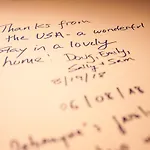 Thanks from
the USA - a wonderful
stay in a lovely
home! Doug, Emily,
Sally + Sam
8/19/18
06/08/18